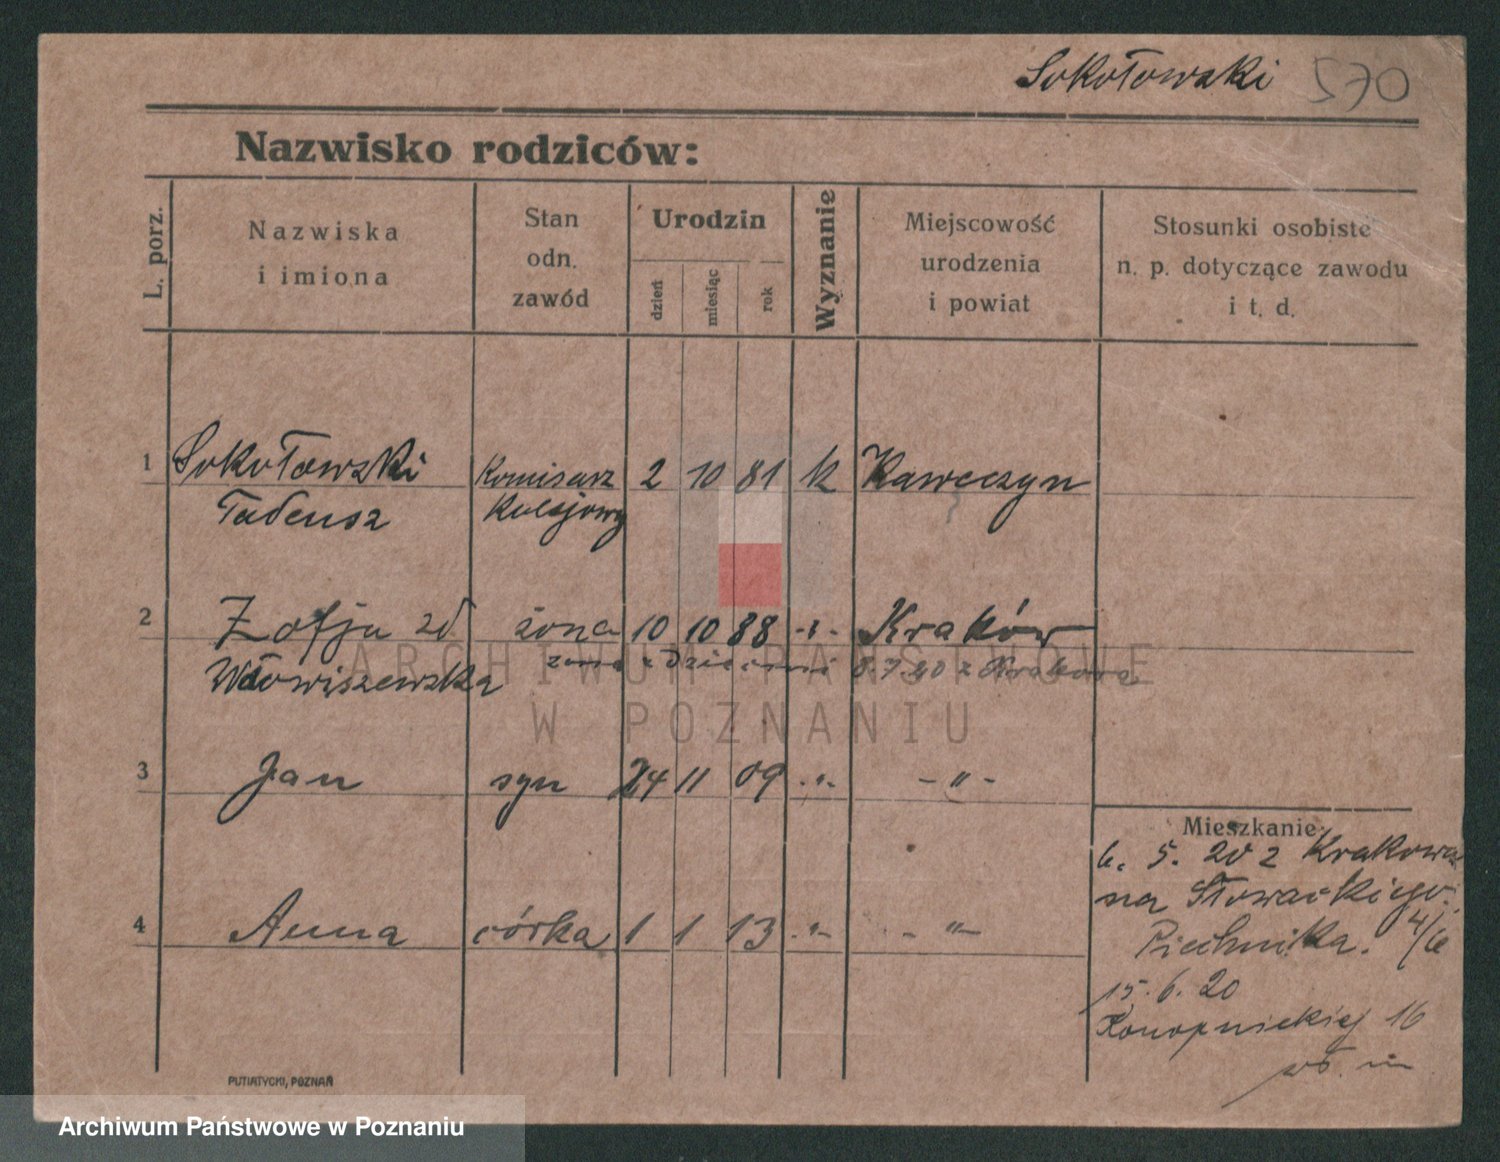 Sokołowski 570
Nazwisko rodziców:
L. porz.
Nazwiska
i imiona
Stan
odn.
zawód
Urodzin
dzień
miesiąc
rok
Wyznanie
Miejscowość
urodzenia
i powiat
Stosunki osobiste
n. p. dotyczące zawodu
i t. d.
1 Sokołowski Komisarz 2 10 81 k Kawęczyn
Tadeusz Kolejowy
2 Zofja zd żona 10 10 88 -"- Kraków
Włowiszewska żona z dziećmi 8.7.20 z Krakowa
3 Jan syn 24 11 09 -"- -"-
4 Anna córka 1 1 13 -"- -"-
Mieszkanie:
6. 5. 20 z Krakowa
na Słowackiego
Piechnika. 4/6
15. 6. 20
Konopnickiej 16
PUTIATYCKI, POZNAŃ
ARCHIWUM PAŃSTWOWE
W POZNANIU
Archiwum Państwowe w Poznaniu